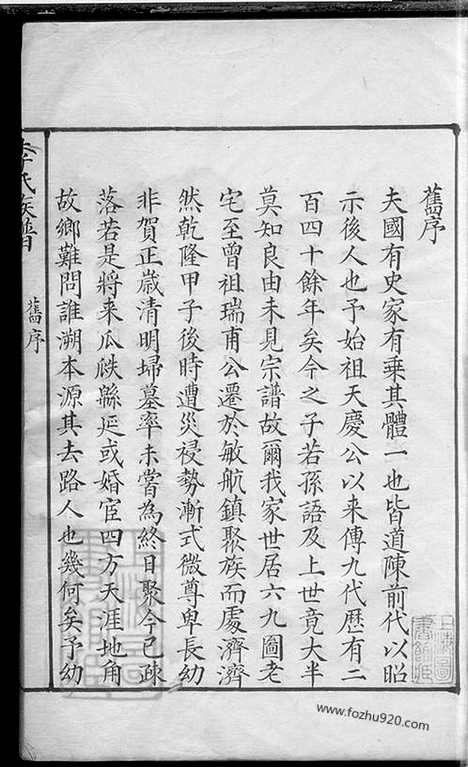 舊序
夫國有史家有乗其體一也皆道陳前代以昭
示後人也予始祖天慶公以来傳九代歴有二
百四十餘年矣今之子若孫語及上世竟大半
莫知良由未見宗譜故爾我家世居六九圖老
宅至曽祖瑞甫公遷於敏航鎮聚族而處濟濟
然乾隆甲子後時遭災祲勢漸式微尊卑長幼
非賀正歳清明埽墓率未嘗為終日聚今已疎
落若是將来瓜瓞緜延或婚宦四方天涯地角
故鄉難問誰溯本源其去路人也幾何矣予幼
氏族譜
舊序
www.fozhu920.com